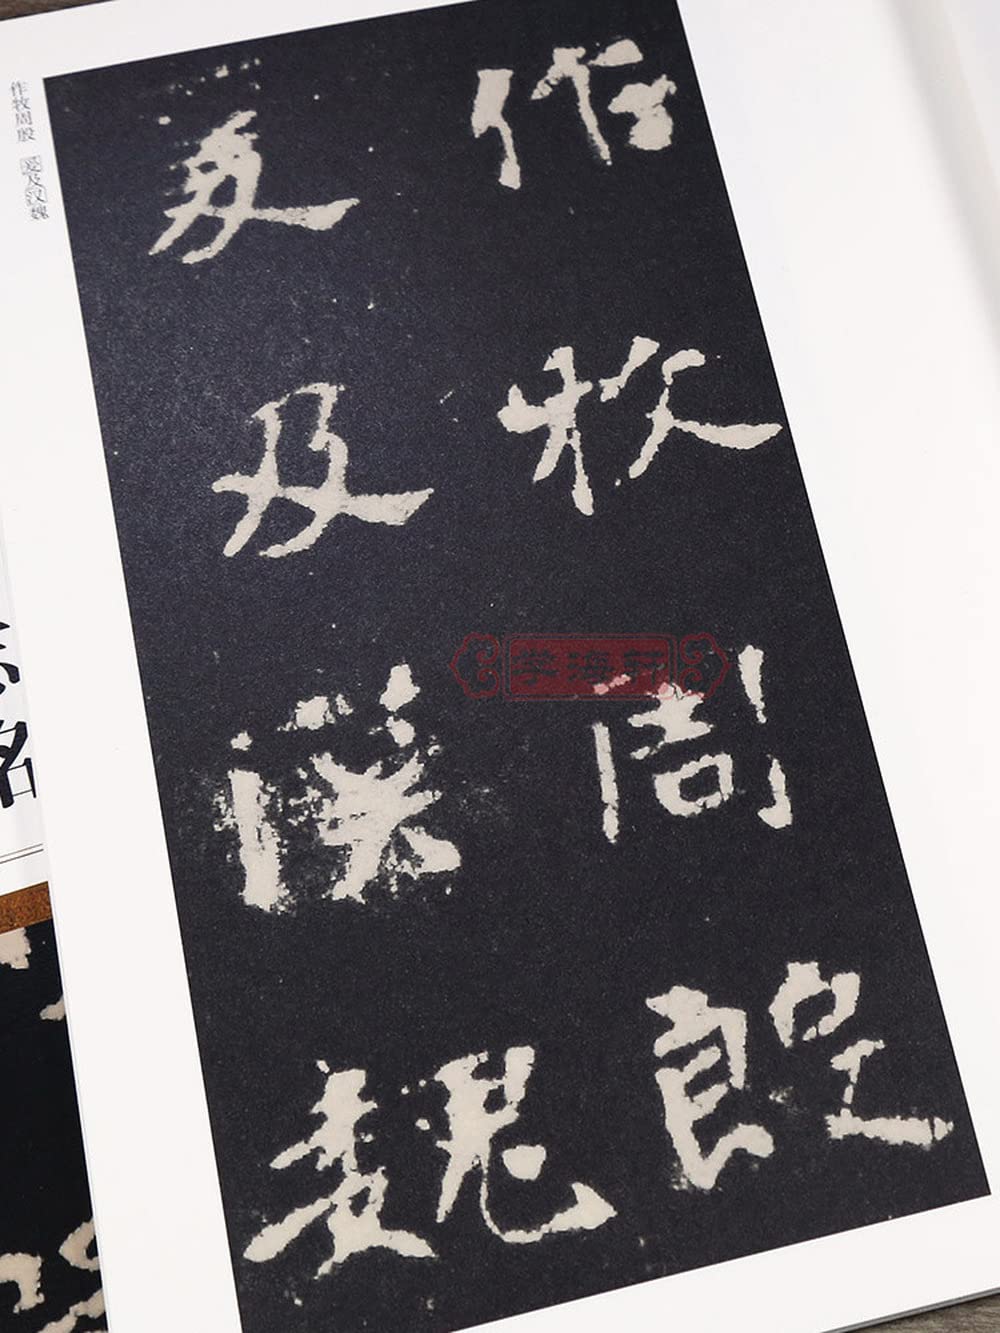 作牧周殷
爰及漢魏
作牧周殷 爰及汉魏
学海轩